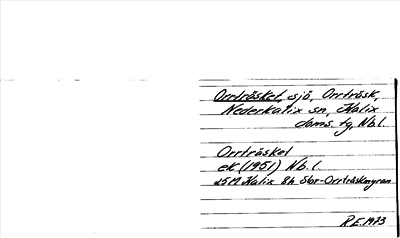 Orrträsket, sjö, Orrträsk,
Nederkalix sn, Kalix
doms. tg, Nb.l.
Orrträsket
ek (1951) Nb.l.
25M Kalix 8h Stor-Orrträskmyran
R.E. 1973